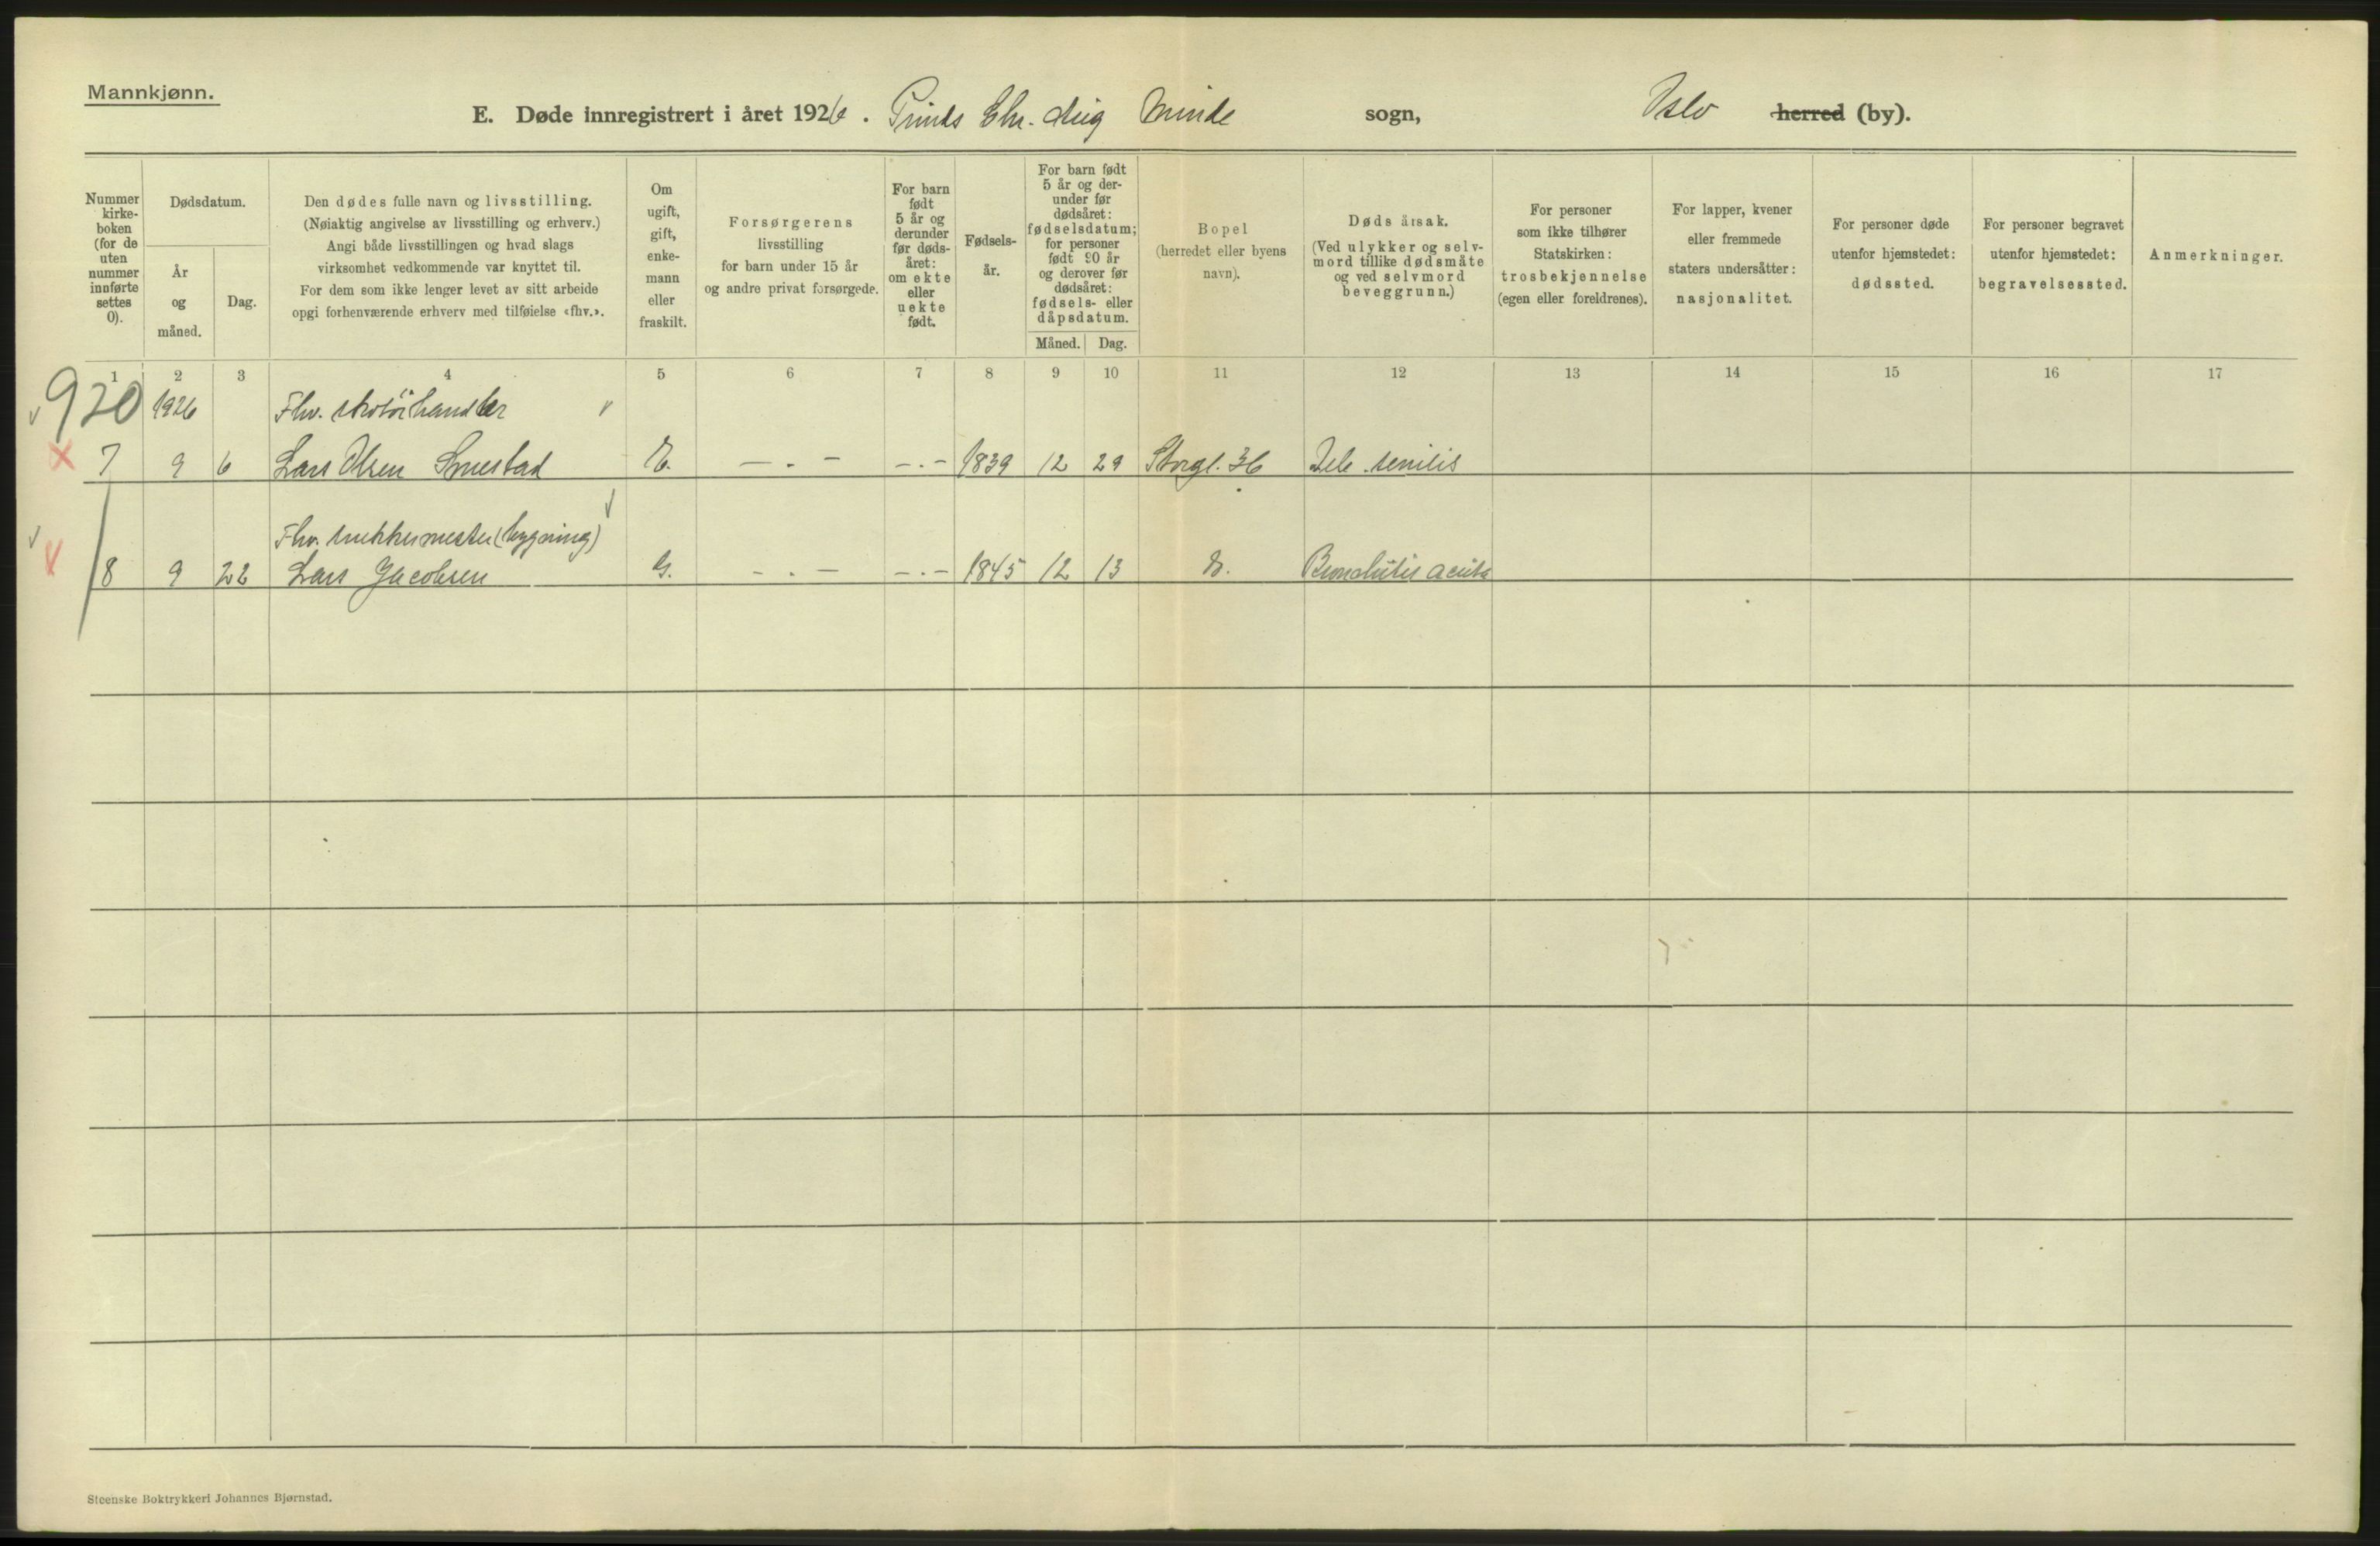 Mannkjønn.
E. Døde innregistrert i året 1926. Prinds Chr. Aug Minde sogn, Oslo herred (by).
Nummer kirke-boken (for de uten nummer innførte settes 0).
Dødsdatum.
År og måned.
Dag.
Den dødes fulle navn og livsstilling.
(Nøiaktig angivelse av livsstilling og erhverv.)
Angi både livsstillingen og hvad slags
virksomhet vedkommende var knyttet til.
For dem som ikke lenger levet av sitt arbeide
opgi forhenværende erhverv med tilføielse «fhv.».
Om ugift, gift, enke-mann eller fraskilt.
Forsørgerens
livsstilling
for barn under 15 år
og andre privat forsørgede.
For barn født 5 år og derunder før døds-året: om ekte eller uekte født.
Fødsels-år.
For barn født 5 år og der-under før dødsåret: fødselsdatum; for personer født 90 år og derover før dødsåret: fødsels- eller dåpsdatum.
Måned. Dag.
Bopel
(herredet eller byens
navn).
Døds årsak.
(Ved ulykker og selv-
mord tillike dødsmåte
og ved selvmord
beveggrunn.)
For personer
som ikke tilhører
Statskirken:
trosbekjennelse
(egen eller foreldrenes).
For lapper, kvener
eller fremmede
staters undersåtter:
nasjonalitet.
For personer døde
utenfor hjemstedet:
dødssted.
For personer begravet
utenfor hjemstedet:
begravelsessted.
Anmerkninger.
1 2 3 4 5 6 7 8 9 10 11 12 13 14 15 16 17
920 1926 Fhv. skotöihandler
7 9 6 Lars Olsen Smestad E. — . — — . — 1839 12 29 Storgt. 36 Deb. senilis
Fhv. snekkermester (bygning)
8 9 22 Lars Jacobsen G. — . — — . — 1845 12 13 D. Bronchitis acuta
Steenske Boktrykkeri Johannes Bjørnstad.